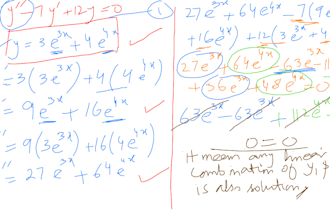 y'' - 7y' + 12y = 0 (i)
y = 3e^{3x} + 4e^{4x}
= 3(3e^{3x}) + 4(4e^{4x})
= 9e^{3x} + 16e^{4x}
'' = 9(3e^{3x}) + 16(4e^{4x})
'' = 27e^{3x} + 64e^{4x}
27e^{3x} + 64e^{4x} - 7(9e
+16e^{4x}) + 12(3e^{3x} + 4
27e^{3x} + 64e^{4x} - 63e^{3x} - 11
+ 36e^{3x} + 48e^{4x} = 0
63e^{3x} - 63e^{3x} + 112e^{4x}
0 = 0
it means any linear
combination of y₁ &
is also solution